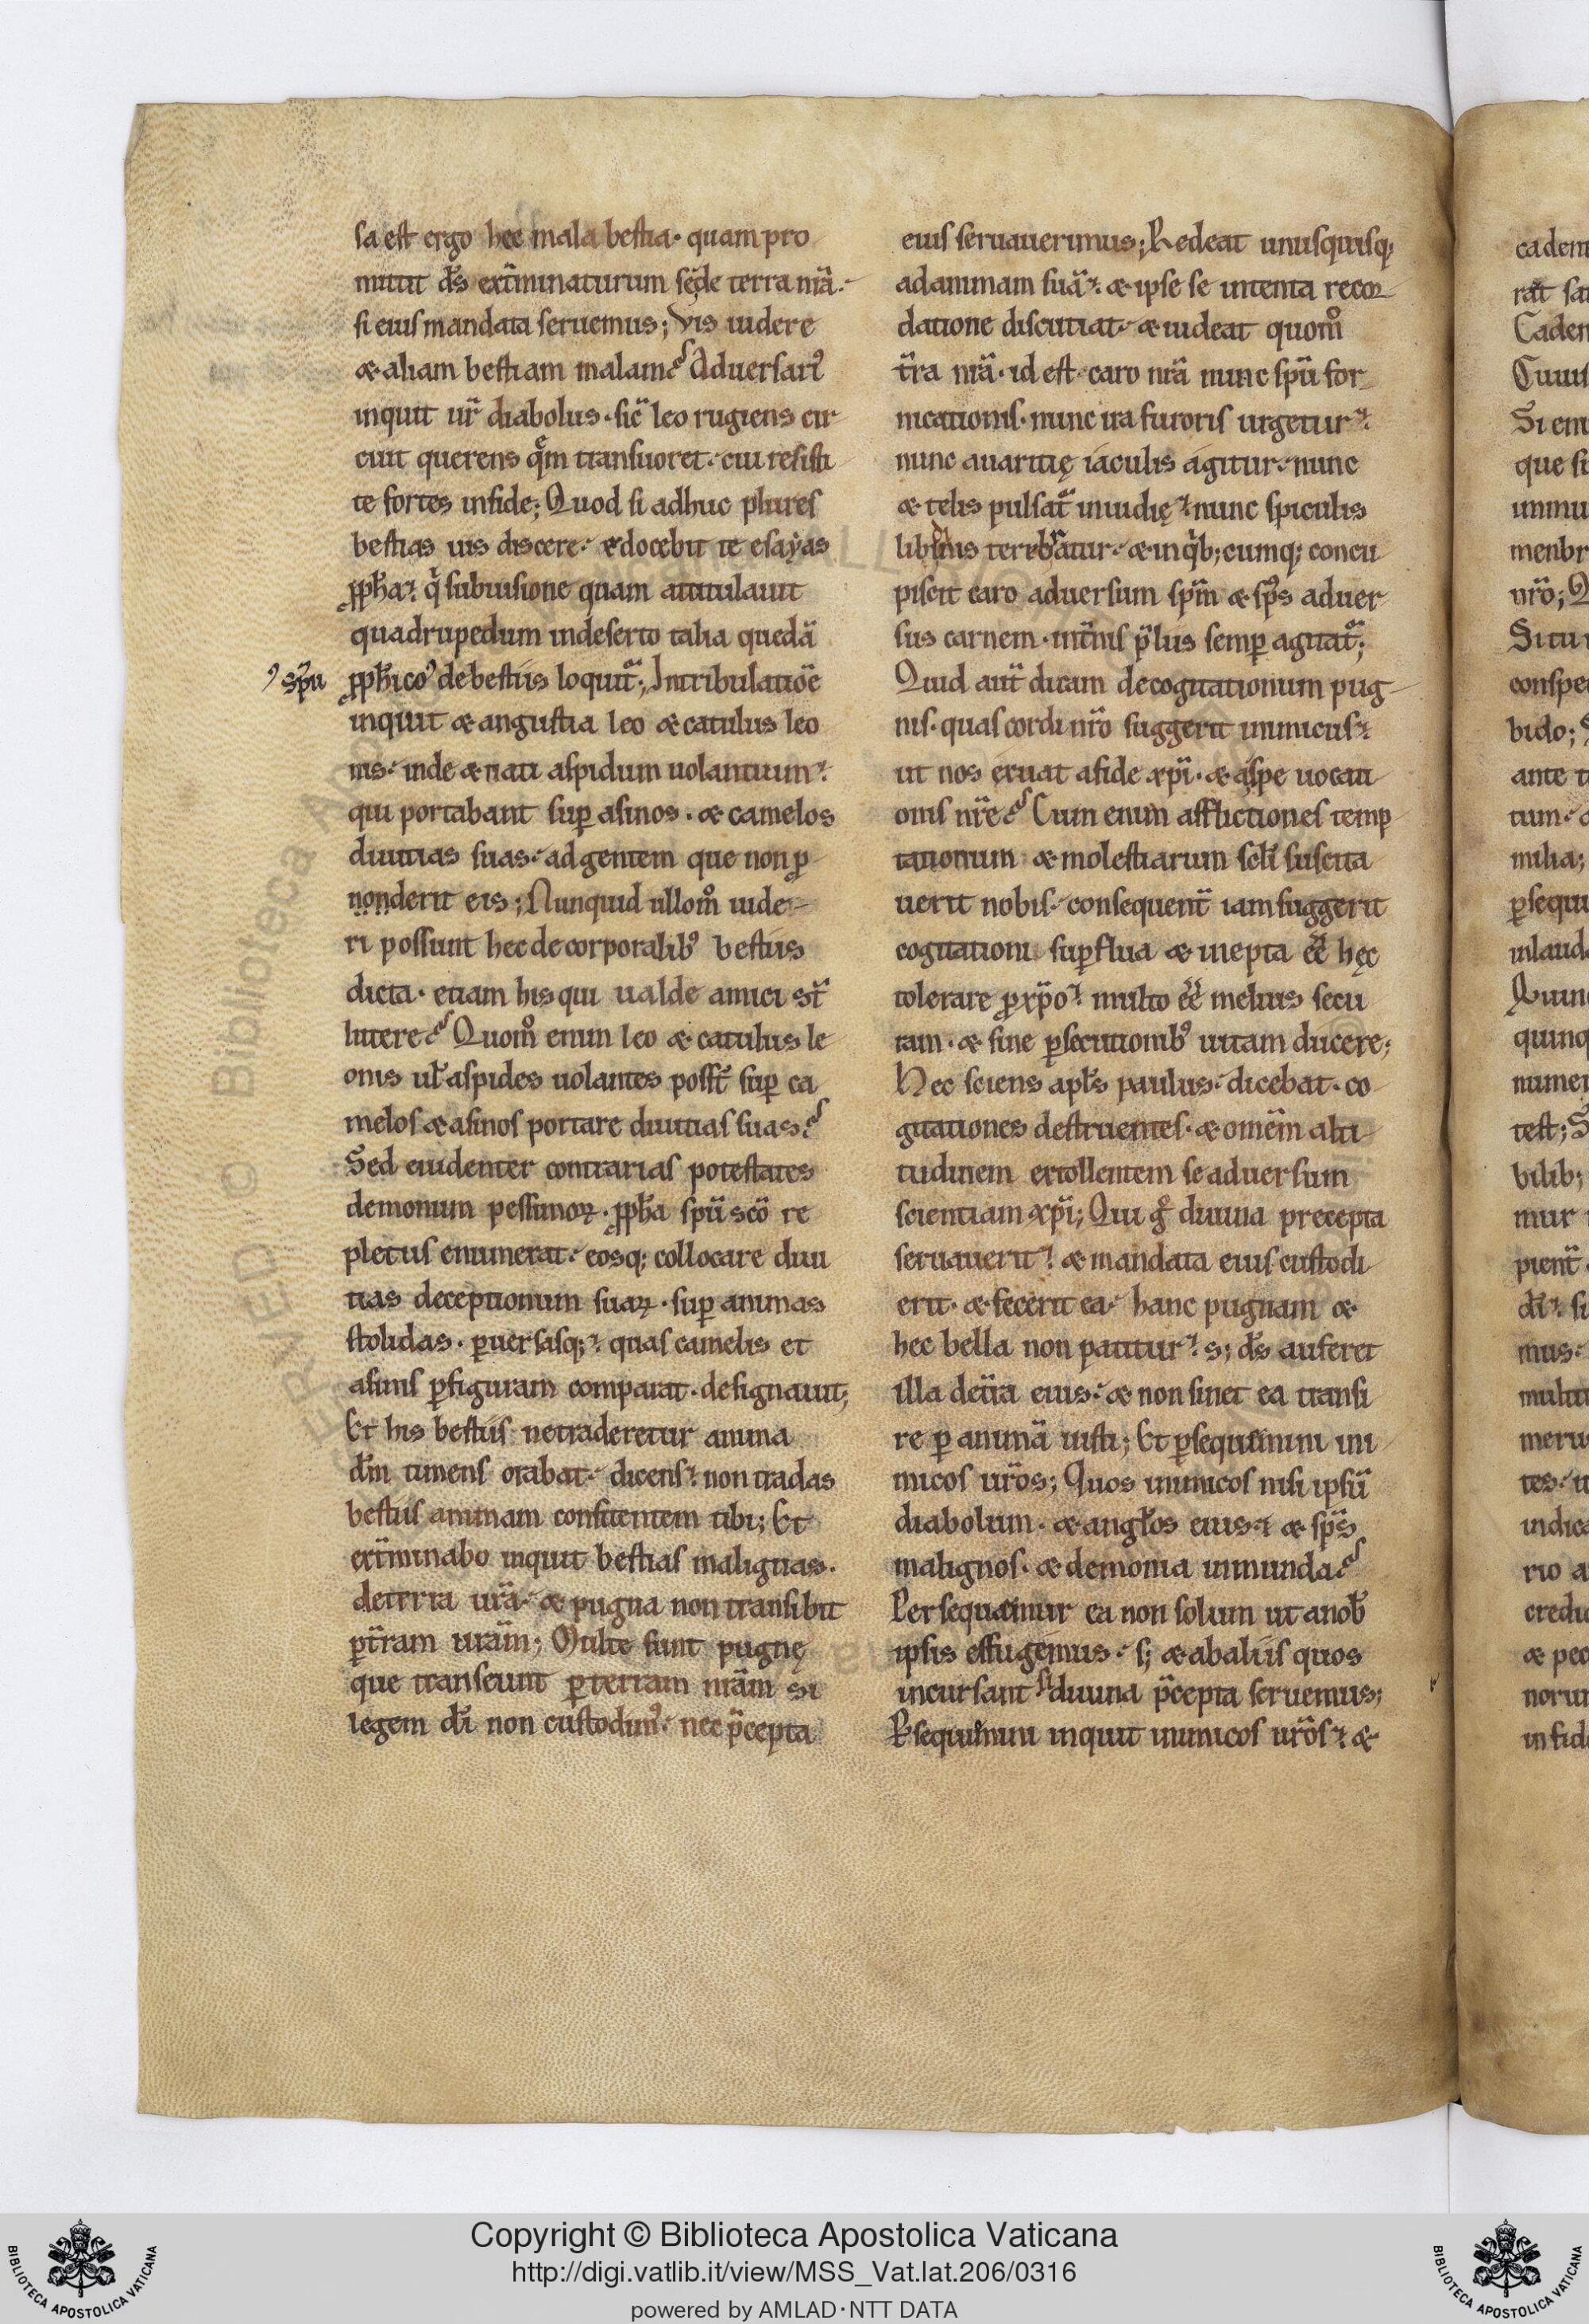 sa est ergo hec mala bestia· quam pro
mittit d̅s ext̅minaturum se̅ de terra nr̅a·
si eius mandata seruemus; Vis uidere
& aliam bestiam malam? Aduersari᾽
inquit ur̅ diabolus· sic̅ leo rugiens cir
cuit querens que̅m transuoret· cui resisti
te fortes infide; Quod si adhuc plures
bestias uis discere· edocebit te esayas
pph̅a· q̇ subuisione quam attitulauit
quadrupedum indeserto talia queda̅
᾽ sp̅u
pph̅ico᾽ debestiis loquit̅; Intribulatio̅e
inquit & angustia leo & catulus leo
nis· inde & nati aspidum uolantium·
qui portabant sup̱ asinos· & camelos
diuitias suas· adgentem que non p̱
nonderit eis; Nunquid ullom̊ uide
ri possunt hec de corporalib᾽ bestiis
dicta· etiam his qui ualde amici st̅
littere? Quom̊ enim leo & catulus le
onis ul̅ aspides uolantes poss̅t sup̱ ca
melos & asinos portare diuitias suas?
Sed euidenter contrarias potestates
demonum pessimoꝝ· pph̅a sp̅u sc̅o re
pletus enumerat· eosq; collocare diui
tias deceptionum suaꝝ· sup̱ animas
stolidas· p̱uersasq;· quas camelis et
asinis p̱figuram comparat· designauit;
Et his bestiis netraderetur anima
d̅m timens orabat· dicens· non tradas
bestiis animam confitentem tibi; Et
ext̅minabo inquit bestias malignas·
deterra ur̅a· & pugna non transibit
p̱t̅ram ura̅m; Multe sunt pugnę
que transeunt p̱terram nra̅m si
legem d̅i non custodim᾽· nec p̅cepta
eius seruauerimus; Redeat unusquisq;
adanimam sua̅· & ipse se intenta recor
datione discutiat· & uideat quom̊
t̅ra nr̅a· id est caro nr̅a nunc sp̅u for
nicationis· nunc ira furoris urgetur·
nunc auaritię iaculis agitur· nunc
& telis pulsat̅ inuidię· nunc spiculis
libidinis terebratur· & inq̇b; cumq; concu
piscit caro aduersum sp̅m & sp̅s aduer
sus carnem· int̅nis p̅lus semp̱ agitat̅;
Quid aut̅ dicam decogitationum pug
nis· quas cordi nr̅o suggerit inimicus·
ut nos eruat afide xp̅i· & aspe uocati
onis nr̅e? Cum enim afflictiones temp
tationum & molestiarum scl̅i suscita
uerit nobis· consequent̅ iam suggerit
cogitationi sup̱flua & inepta ee̅ hęc
tolerare p̱xp̅o· multo ee̅ melius secu
ram· & sine p̱secutionib᾽ uitam ducere;
Hec sciens apl̅s paulus· dicebat· co
gitationes destruentes· & ome̅m alti
tudinem extollentem se aduersum
scientiam xp̅i; Qui g̊ diuina precepta
seruauerit· & mandata eius custodi
erit· & fecerit ea· hanc pugnam &
hec bella non patitur· s; d̅s auferet
illa det̅ra eius· & non sinet ea transi
re p̱ anima̅ iusti; Et p̱sequimini ini
micos ur̅os; Quos inimicos nisi ipsu̅
diabolum· & angl̅os eius· & sp̅s
malignos· & demonia inmunda?
Persequamur ea non solum ut anob̅
ipsis effugemus· s; & abaliis quos
incursant si diuina p̅cepta seruemus;
P̱sequimini inquit inimicos ur̅os· &
cadem
Caden
Si em
que si
inmu
menbr
nr̅o; Q
Si tu
conspe
bido; S
ante t
milia;
p̱sequi
inlaud
quinq
numer
test; S
bilib;
mur
mus·
multi
meru
tes·
indic
rio a
credi
& pec
norun
in fid
Copyright © Biblioteca Apostolica Vaticana
http://digi.vatlib.it/view/MSS_Vat.lat.206/0316
powered by AMLAD·NTT DATA
BIBLIOTECA APOSTOLICA VATICANA
BIBLIOTECA APOSTOLICA VATICANA